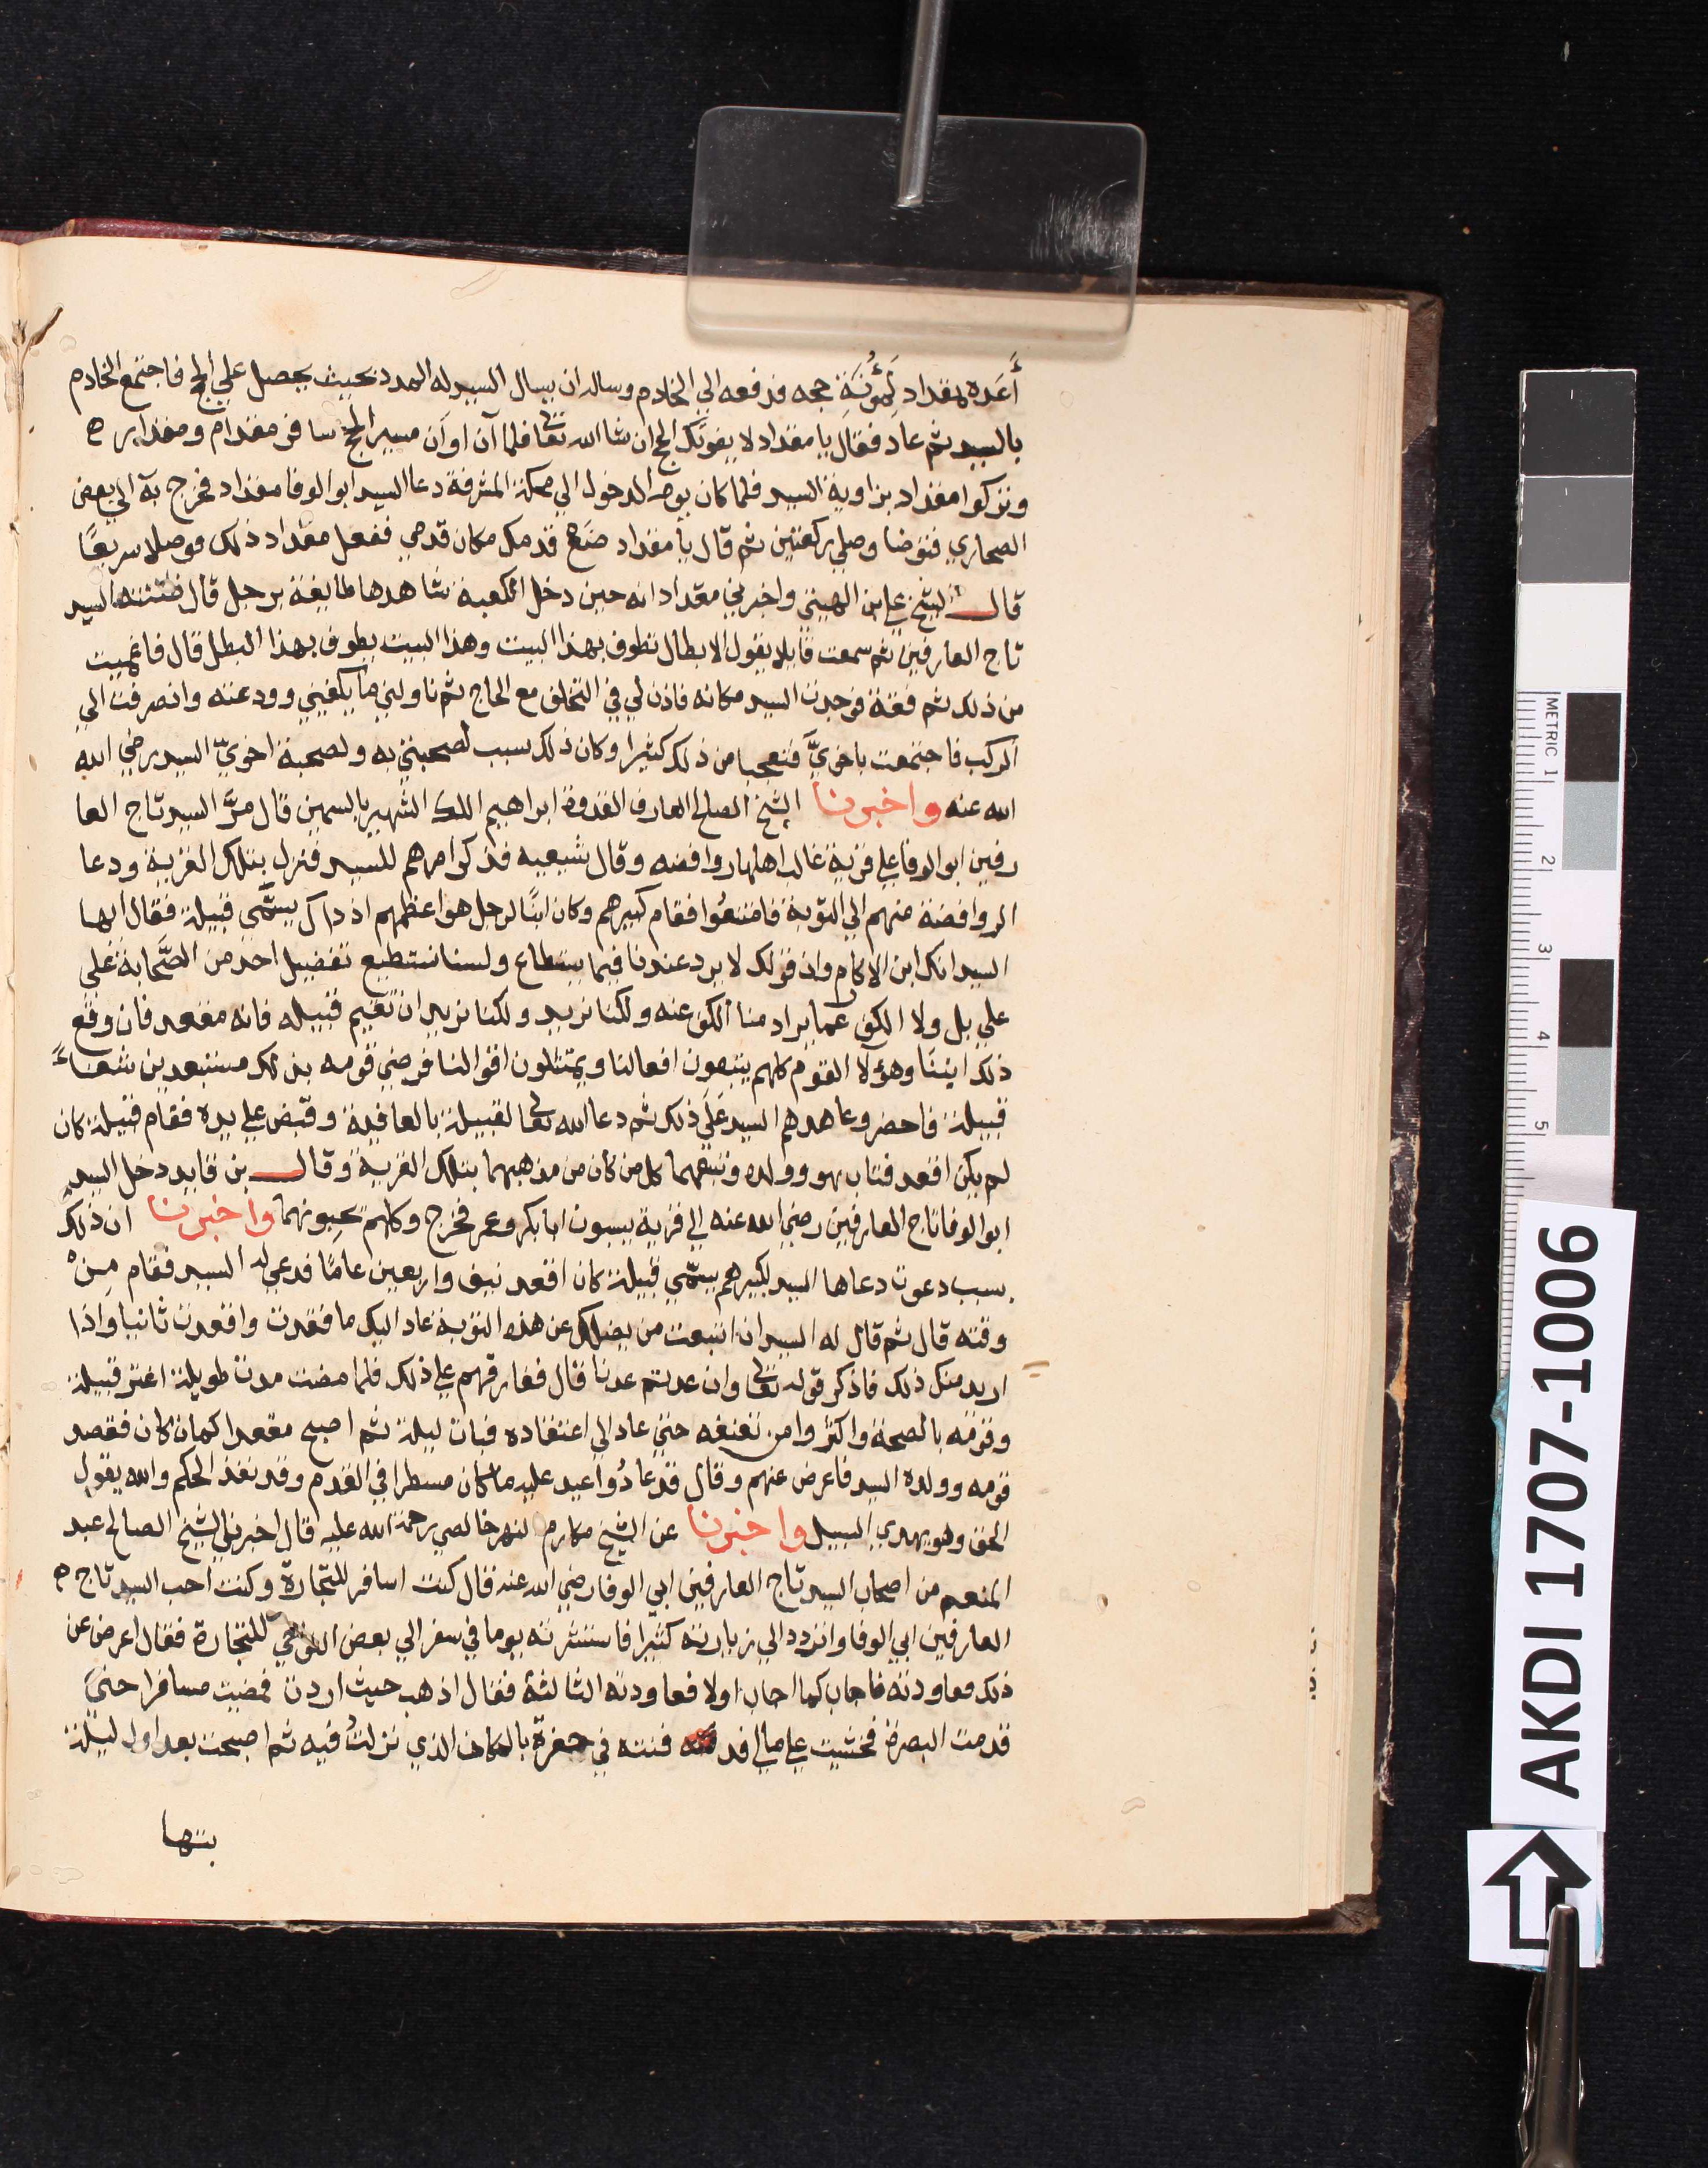 أَعَده مقداد لِمُؤنَةِ حجه فدفعه الي الخادم وساله ان يسال السيد له المدد بحيث يحصل علي الحج فاجتمع الخادم
بالسيد ثم عاد فقال يا مقداد لا يفوتك الحج ان شا الله تعالي فلما آن اوان مسير الحج سافر مقدام ومقدار
وتركوا مقداد بزاوية السيد فلما كان يوم الدخول الي مكة المشرفة دعا السيد ابو الوفا مقداد فخرج به الي بعض
الصحاري فتوضا وصلي ركعتين ثم قال يا مقداد ضَع قدمك مكان قدمي ففعل مقداد ذلك فوصلا سريعًا
قال الشيخ علي بن الهيتي واخبرني مقداد انه حين دخل الكعبة شاهدها طايفة برجل قال ظننته السيد
تاج العارفين ثم سمعت قايلا يقول الابطال تطوف بهذا البيت وهذا البيت يطوف بهذا البطل قال فاغميت
من ذلك ثم فقة فوجدت السيد مكانه فاذن لي في التخلف مع الحاج ثم ناولني ما يكفيني وودعته وانصرفت الي
الركب فاجتمعت باخويَّ فتعجبا من ذلك كثيرا وكان ذلك سبب لصحبتي به ولصحبة اخويّ السيد رضي الله
الله عنه واخبرنا الشيخ الصالح العارف القدوة ابراهيم الشهير بالسمين قال مرَّ السيد تاج العا
رفين ابو الوفا علي قرية غالب اهلها روافضه وقال شيعيه فذكوا امرهم للسيد فنزل بتلك القرية ودعا
الروافضة منهم الي التوبة فامتنعُوا فقام كبيرهم وكان ابنًا لرجل هو اعظمهم اذ داك يسمّي قبيلة فقال ايها
السيد انك ابن الاكام وان قولك لا يرد عندنا فيما يستطاع ولسنا نستطيع تفضيل احد من الصَّحابة علي
علي بل ولا الكف عما يراد منا الكف عنه ولكنا نريد ولكنا نريد ان تقيم قبيله فانه مقعد فان وقع
ذلك ايننا وهؤلا القوم كلهم يتبعون افعالنا ويمتثلون اقوالنا فرضي قومه بذلك مستبعدين شفاءً
قبيلة فاحضر وعاهدهم السيد عَلَي ذلك ثم دعا الله تعالي لقبيلة بالعافية وقبض علي يده فقام قبيلة كان
لم يكن اقعد فتاب هو وولده وتبعهما كل من كان من مذهبهما بتلك القرية وقال بن قايد دخل السيد
ابو الوفا تاج العارفين رضي الله عنه الي قرية يسبون ابا بكر وعمر فخرج وكلهم يحبونهما واخبرنا ان ذلك
بسبب دعوت دعاها السيد لكبيرهم يسمّي قبيلة كان اقعد نيف واربعين عامًا فدعي له السيد فقام مِنْ
وقته قال ثم قال له السيد ان اتبعت من يضلك عن هذه التوبة عاد اليك ما فقدت واقعدت ثانيا واذا
اريد منك ذلك فاذكر قوله تعالي وان عدتم عدنا قال ففارقهم علي ذلك فلما مضت مدت طويلة اغتر قبيلة
وقومه بالصحة واكثر وامن تعنفه حتي عاد الي اعتقاده فبات ليلة ثم اصبح مقعدا كما كان فقصد
قومه وولده السيد فاعرض عنهم وقال قد عادُوا عيد عليه ما كان مسطرا في القدم وقد نفذ الحكم والله يقول
الحق وهو يهدي السبيل واخبرنا عن الشيخ مكارم النهرخالصي رحمة الله عليه قال اخبرنا الشيخ الصالح عبد
المنعم من اصحاب السيد تاج العارفين ابي الوفا رضي الله عنه قال كنت اسافر للتجارة وكنت احب السيد تاج
العارفين ابي الوفا واتردد الي زيارته كثيرا فاستشرته يوما في سفر الي بعض النواحي للتجارة فقال اعرض عن
ذلك فعاودته فاجاب كما اجاب اولا فعاودته الثالثة فقال اذهب حيث اردت فمضيت مسافرا حتيَ
قدمت البصرة فخشيت علي مالي فدفنته في حفرة بالمكان الذي نزلتُ فيه ثم اصبحت بعد اول ليلة
بتها